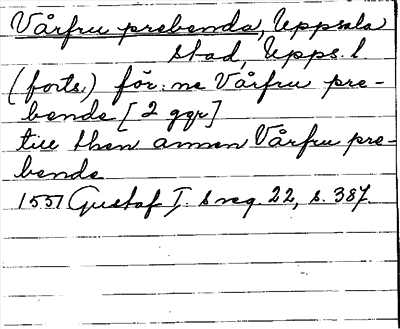 Vårfru prebenda, Uppsala
stad, Upps. l.
(forts.) för: ne Vårfru pre-
bende [2 ggr]
till then annen Vårfru pre-
bende
1557 Gustaf I. s reg. 22, s. 387.